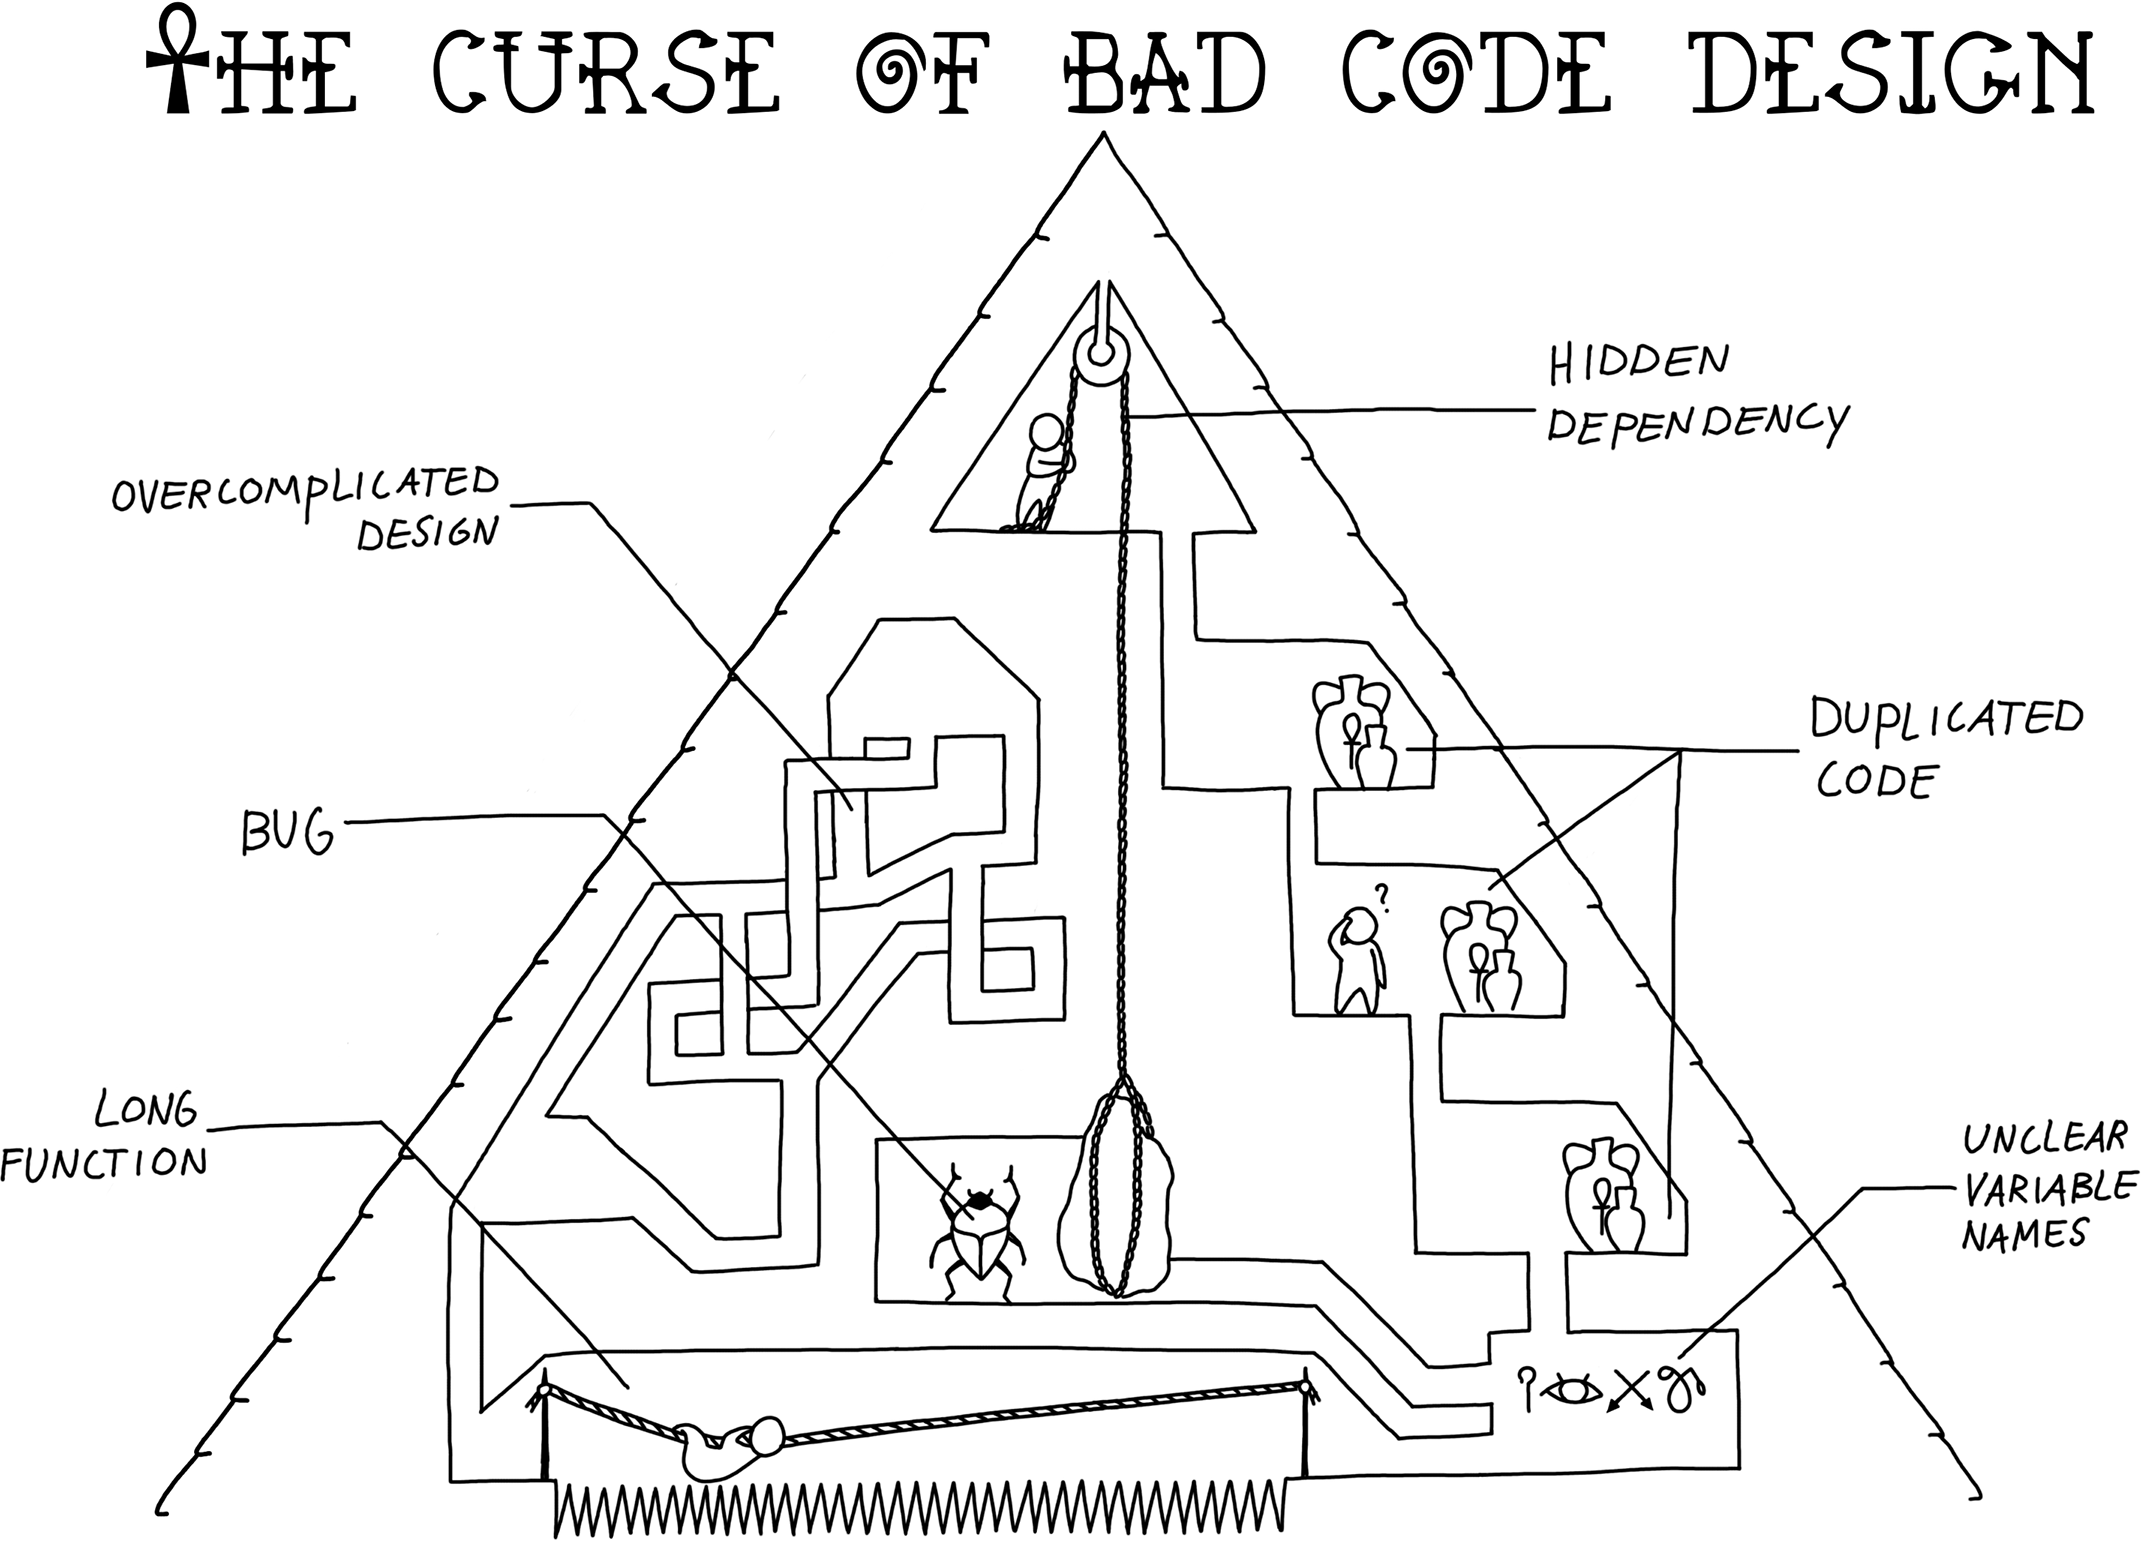 THE CURSE OF BAD CODE DESIGN
HIDDEN
DEPENDENCY
OVERCOMPLICATED
DESIGN
DUPLICATED
CODE
BUG
?
LONG
FUNCTION
UNCLEAR
VARIABLE
NAMES